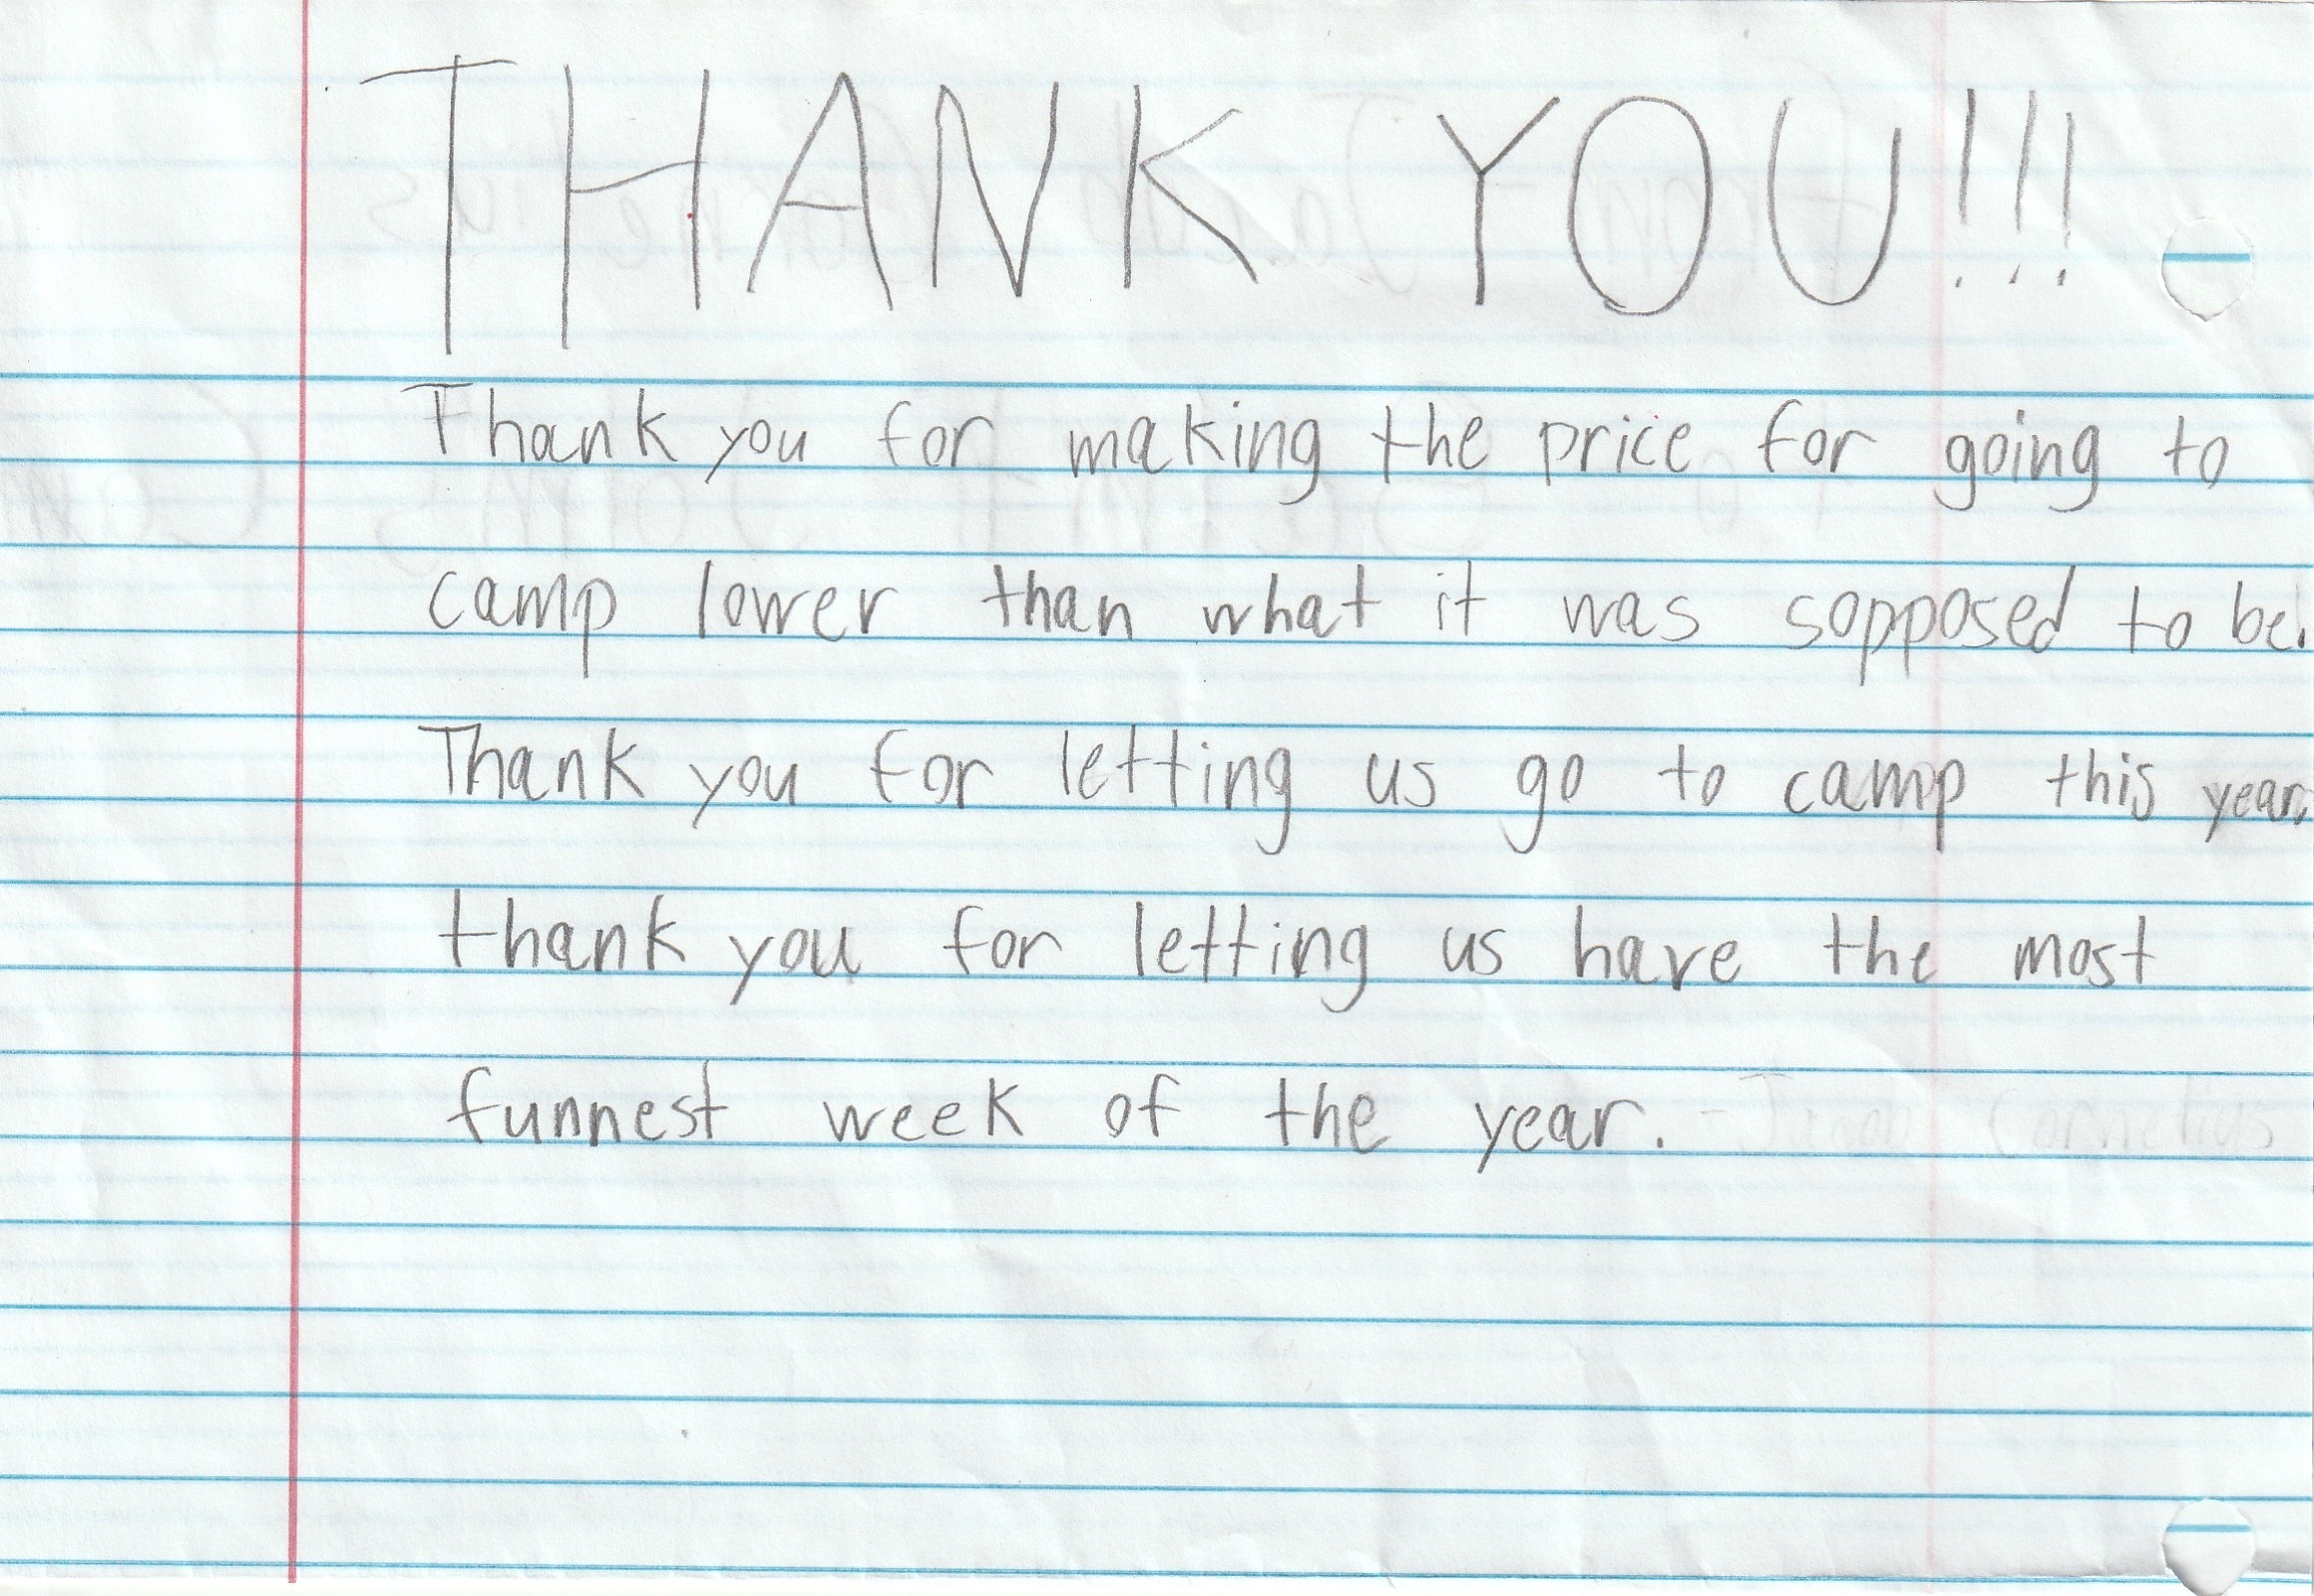 THANK YOU!!!
Thank you for making the price for going to
camp lower than what it was sopposed to be.
Thank you for letting us go to camp this year.
thank you for letting us have the most
funnest week of the year. - Jacob Cornelius